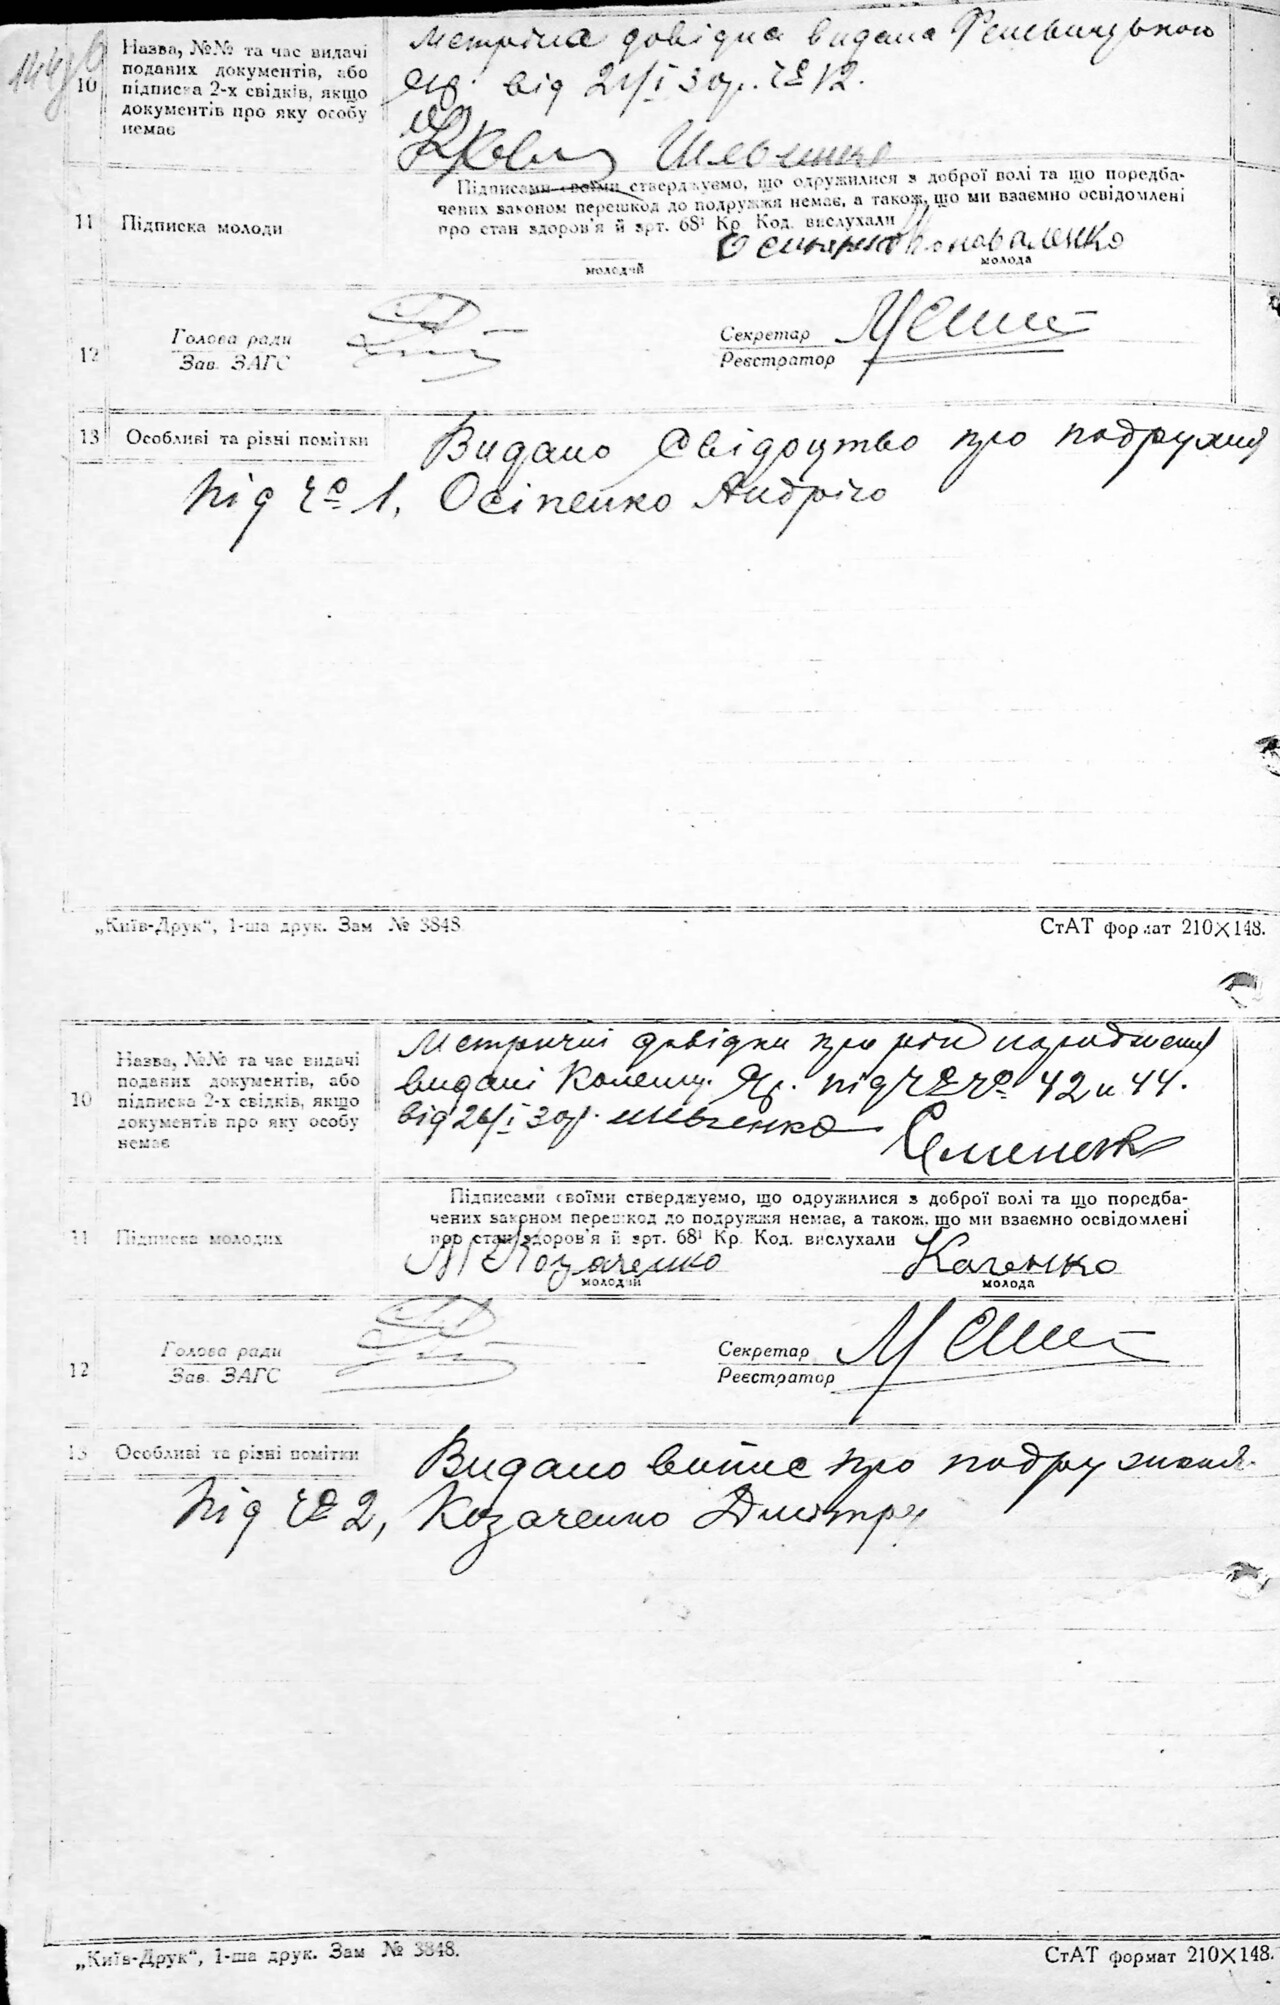 144
10
Назва, №№ та час видачі
поданих документів, або
підписка 2-х свідків, якщо
документів про яку особу
немає
довідка видана
від 21/I 30р. ч⁰ 12.
11
Підписка молоди
Підписами своїми стверджуємо, що одружилися з доброї волі та що передба-
чених законом перешкод до подружжя немає, а також, що ми взаємно освідомлені
про стан здоров'я й арт. 68¹ Кр. Код. вислухали
Коноваленко
молодий
молода
12
Голова ради
Зав. ЗАГС
Секретар
Реєстратор
13
Особливі та різні помітки
Видано Свідоцтво про подружжя
під ч⁰ 1, Осіпенко Андрію
„Київ-Друк“, 1-ша друк. Зам № 3848
СтАТ формат 210×148.
10
Назва, №№ та час видачі
поданих документів, або
підписка 2-х свідків, якщо
документів про яку особу
немає
Метричні довідки про народження
видані під 42 и 44.
від 26/I 30р. Шевченко
11
Підписка молодих
Підписами своїми стверджуємо, що одружилися з доброї волі та що поредба-
чених законом перешкод до подружжя немає, а також, що ми взаємно освідомлені
про стан здоров'я й арт. 68¹ Кр. Код. вислухали
Козаченко
Каченко
молодий
молода
12
Голова ради
Зав. ЗАГС
Секретар
Реєстратор
13
Особливі та різні помітки
Видано витис про подружжя
під ч⁰ 2, Козаченко Дмітру
„Київ-Друк“, 1-ша друк. Зам № 3848.
СтАТ формат 210×148.